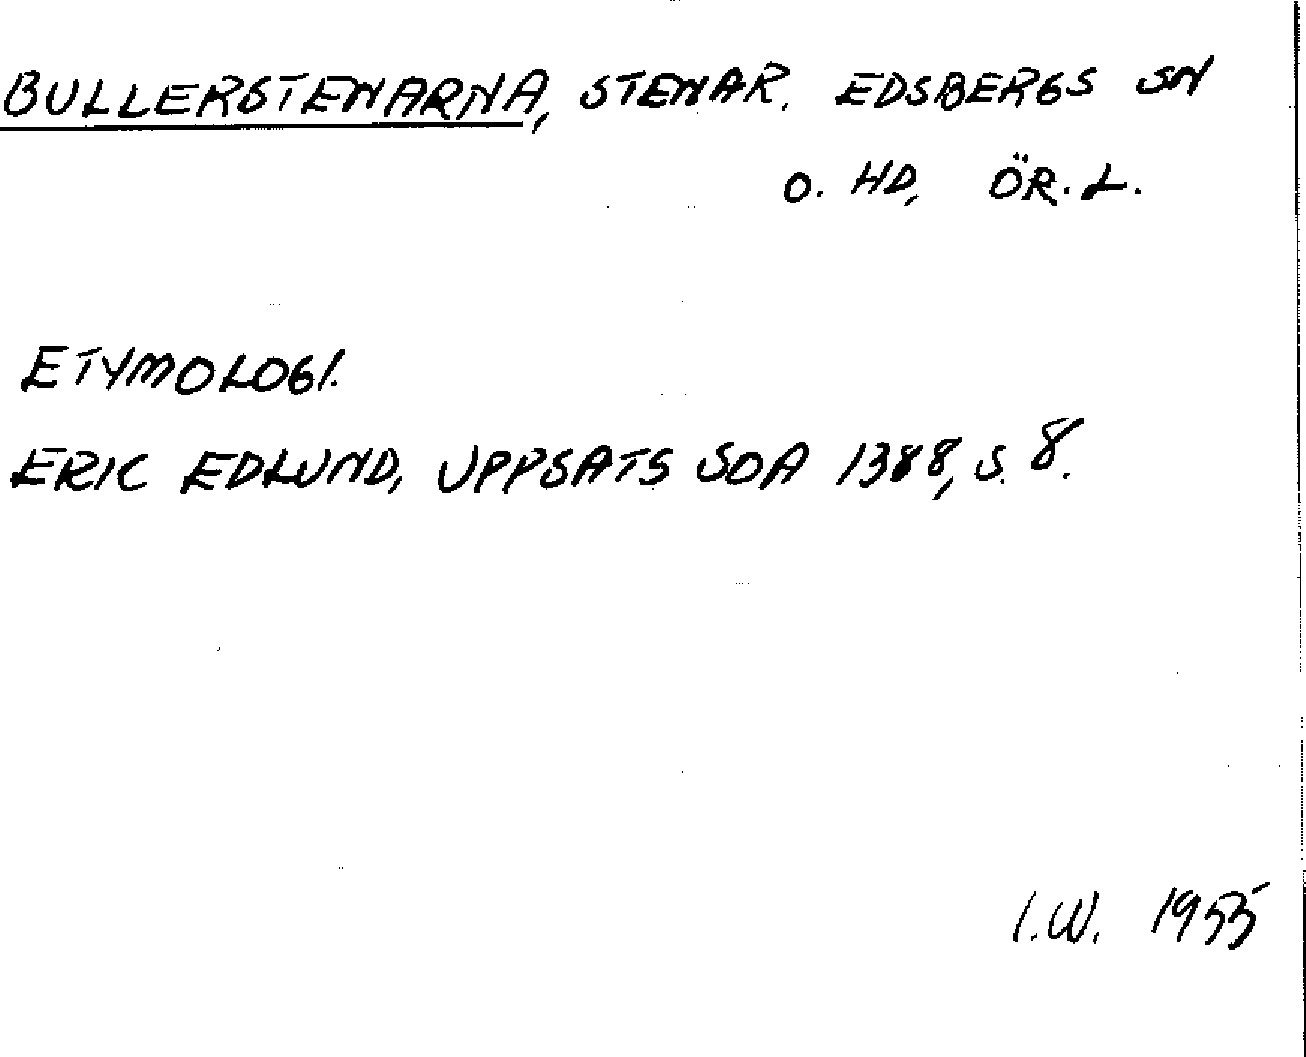 BULLERSTENARNA, STENAR. EDSBERGS SN
O. HD, ÖR. L.
ETYMOLOGI.
ERIC EDLUND, UPPSATS SOA 1388, S. 8.
I.W. 1955